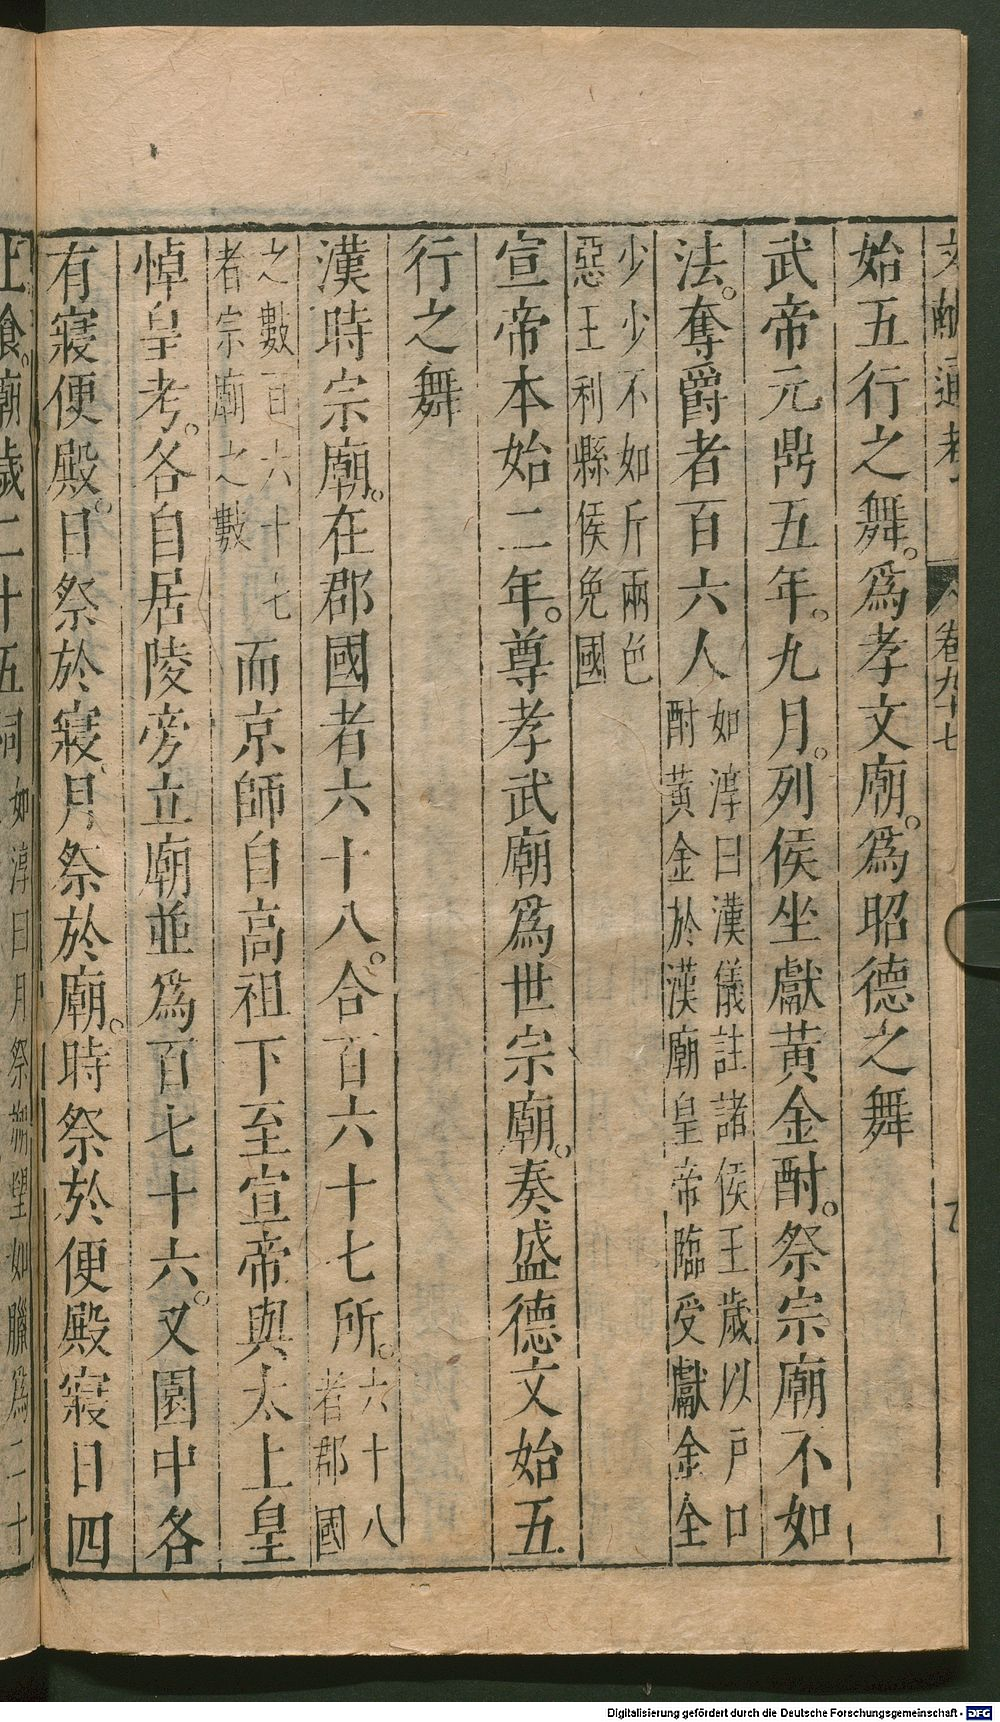 文獻通考 卷九十七 七
始五行之舞。爲孝文廟。爲昭德之舞
武帝元鼎五年。九月。列侯坐獻黃金酎。祭宗廟不如
法。奪爵者百六人
如淳曰漢儀註諸侯王歲以戸口
酎黃金於漢廟皇帝臨受獻金金
少少不如斤兩色
惡王利縣侯免國
宣帝本始二年。尊孝武廟爲世宗廟。奏盛德文始五
行之舞
漢時宗廟。在郡國者六十八。合百六十七所。
六十八
者郡國
之數百六十七
者宗廟之數
而京師自高祖下至宣帝與太上皇
悼皇考。各自居陵旁立廟並爲百七十六。又園中各
有寢便殿。日祭於寢月祭於廟。時祭於便殿寢日四
上食。廟歲二十五祠
如淳曰月祭朔望如臘爲二十
Digitalisierung gefördert durch die Deutsche Forschungsgemeinschaft - DFG